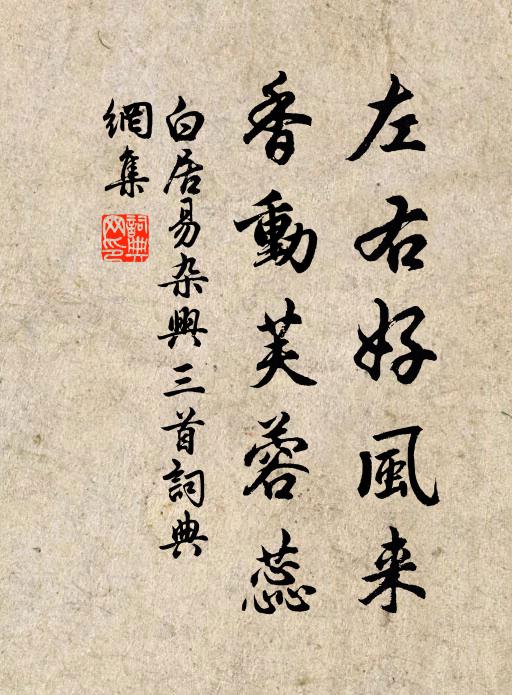 左右好風来
香動芙蓉蕊
白居易杂興三首詞典
網集
詞典
网印